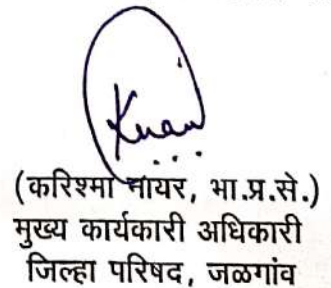 (करिश्मा नायर, भा.प्र.से.)
मुख्य कार्यकारी अधिकारी
जिल्हा परिषद, जळगांव